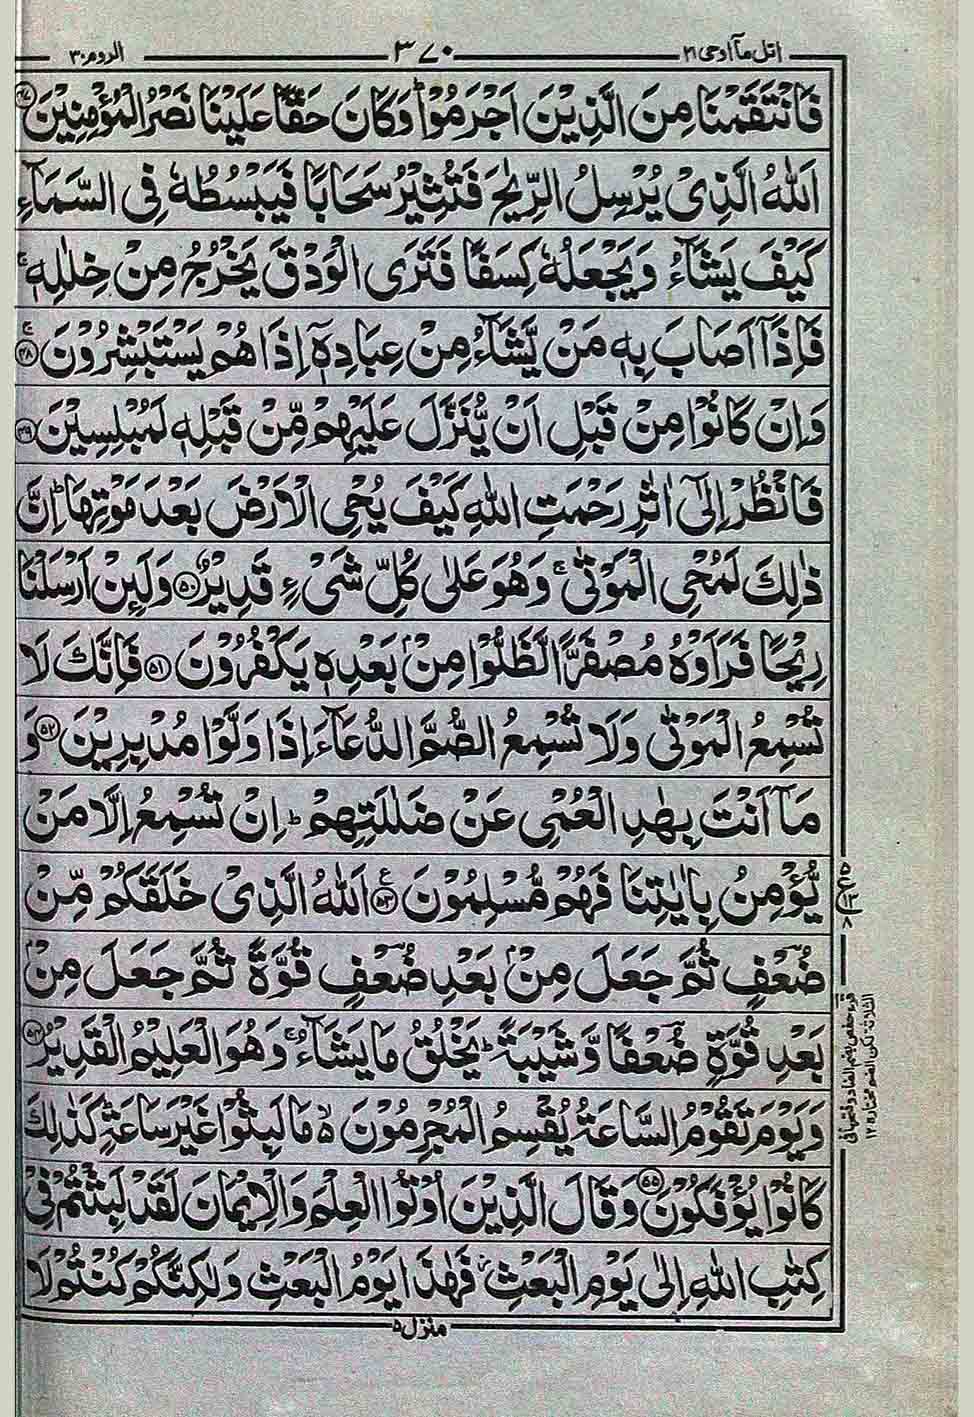 اتل مآ اوحی ۲۱ ۳۷۰ الروم ۳۰
فَانْتَقَمْنَا مِنَ الَّذِیْنَ اَجْرَمُوْا ؕ وَكَانَ حَقًّا عَلَیْنَا نَصْرُ الْمُؤْمِنِیْنَ ۴۷
اَللّٰهُ الَّذِیْ یُرْسِلُ الرِّیٰحَ فَتُثِیْرُ سَحَابًا فَیَبْسُطُهٗ فِی السَّمَآءِ
كَیْفَ یَشَآءُ وَیَجْعَلُهٗ كِسَفًا فَتَرَی الْوَدْقَ یَخْرُجُ مِنْ خِلٰلِهٖ ۚ
فَاِذَاۤ اَصَابَ بِهٖ مَنْ یَّشَآءُ مِنْ عِبَادِهٖۤ اِذَا هُمْ یَسْتَبْشِرُوْنَ ۚ ۴۸
وَاِنْ كَانُوْا مِنْ قَبْلِ اَنْ یُّنَزَّلَ عَلَیْهِمْ مِّنْ قَبْلِهٖ لَمُبْلِسِیْنَ ۴۹
فَانْظُرْ اِلٰۤی اٰثٰرِ رَحْمَتِ اللّٰهِ كَیْفَ یُحْیِ الْاَرْضَ بَعْدَ مَوْتِهَا ؕ اِنَّ
ذٰلِكَ لَمُحْیِ الْمَوْتٰی ۚ وَهُوَ عَلٰی كُلِّ شَیْءٍ قَدِیْرٌ ۵۰ وَلَىِٕنْ اَرْسَلْنَا
رِیْحًا فَرَاَوْهُ مُصْفَرًّا لَّظَلُّوْا مِنْۢ بَعْدِهٖ یَكْفُرُوْنَ ۵۱ فَاِنَّكَ لَا
تُسْمِعُ الْمَوْتٰی وَلَا تُسْمِعُ الصُّمَّ الدُّعَآءَ اِذَا وَلَّوْا مُدْبِرِیْنَ ۵۲ وَ
مَاۤ اَنْتَ بِهٰدِ الْعُمْیِ عَنْ ضَلٰلَتِهِمْ ؕ اِنْ تُسْمِعُ اِلَّا مَنْ
یُّؤْمِنُ بِاٰیٰتِنَا فَهُمْ مُّسْلِمُوْنَ ۵۳ ع اَللّٰهُ الَّذِیْ خَلَقَكُمْ مِّنْ
ضُعْفٍ ثُمَّ جَعَلَ مِنْۢ بَعْدِ ضُعْفٍ قُوَّةً ثُمَّ جَعَلَ مِنْۢ
بَعْدِ قُوَّةٍ ضُعْفًا وَّشَیْبَةً ؕ یَخْلُقُ مَا یَشَآءُ ۚ وَهُوَ الْعَلِیْمُ الْقَدِیْرُ ۵۴
وَیَوْمَ تَقُوْمُ السَّاعَةُ یُقْسِمُ الْمُجْرِمُوْنَ ۙ مَا لَبِثُوْا غَیْرَ سَاعَةٍ ؕ كَذٰلِكَ
كَانُوْا یُؤْفَكُوْنَ ۵۵ وَقَالَ الَّذِیْنَ اُوْتُوا الْعِلْمَ وَالْاِیْمَانَ لَقَدْ لَبِثْتُمْ فِیْ
كِتٰبِ اللّٰهِ اِلٰی یَوْمِ الْبَعْثِ ؗ فَهٰذَا یَوْمُ الْبَعْثِ وَلٰكِنَّكُمْ كُنْتُمْ لَا
منزل ۵